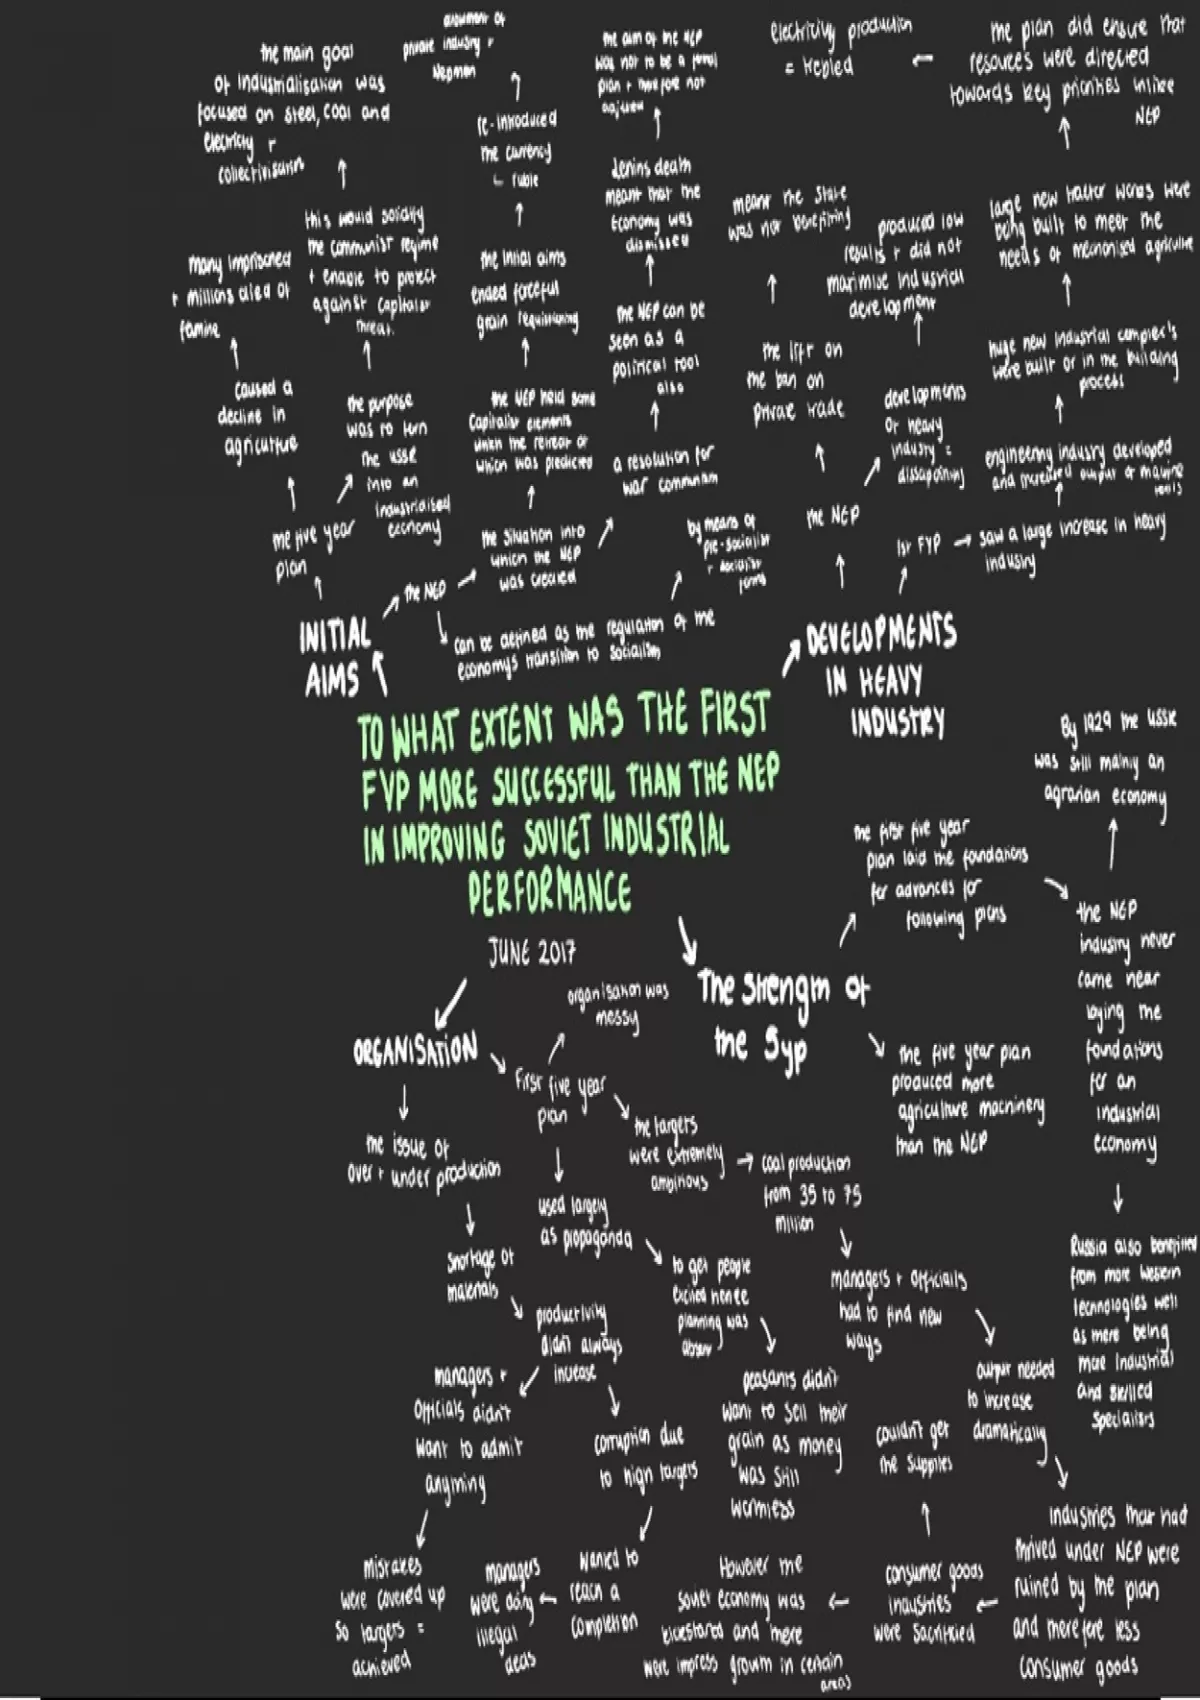 TO WHAT EXTENT WAS THE FIRST
FYP MORE SUCCESSFUL THAN THE NEP
IN IMPROVING SOVIET INDUSTRIAL
PERFORMANCE
JUNE 2017
INITIAL
AIMS
the five year
plan
caused a
decline in
agriculture
many imprisoned
+ millions died of
famine
the purpose
was to turn
the USSR
into an
industrialised
economy
this would solidify
the communist regime
+ enable to protect
against capitalist
threat.
the main goal
of industrialisation was
focused on steel, coal and
electricity +
collectivisation
the NEP
can be defined as the regulation of the
economys transition to socialism
by means of
pre-socialist
+ socialist
forms
the situation into
which the NEP
was created
the NEP held some
capitalist elements
which the retreat of
which was predicted
the initial aims
ended forceful
grain requisitioning
re-introduced
the currency
ruble
private industry +
Nepmen
a resolution for
war communism
the NEP can be
seen as a
political tool
also
Lenins death
meant that the
economy was
dismissed
the aim of the NEP
was not to be a formal
plan + therefore not
adjusted
DEVELOPMENTS
IN HEAVY
INDUSTRY
the NEP
the lift on
the ban on
private trade
meant the state
was not benefiting
developments
of heavy
industry =
dissapointing
produced low
results + did not
maximise industrial
development
1st FYP → saw a large increase in heavy
industry
engineering industry developed
and increased output of machine
tools
huge new industrial complex's
were built or in the building
process
large new tractor works were
being built to meet the
needs of mechonised agriculture
the plan did ensure that
resources were directed
towards key priorities unlike
NEP
electricity production
= trebled
The Strength of
the 5yp
the first five year
plan laid the foundations
for advances for
following plans
the NEP
industry never
came near
laying the
foundations
for an
industrial
economy
By 1929 the USSR
was still mainly an
agrarian economy
Russia also benefitted
from more Western
technologies well
as there being
more industrial
and skilled
specialists
the five year plan
produced more
agriculture machinery
than the NEP
ORGANISATION
the issue of
over + under production
shortage of
materials
productivity
didn't always
increase
managers +
officials didn't
want to admit
anything
mistakes
were covered up
so targets =
achieved
corruption due
to high targets
wanted to
reach a
completion
managers
were doing
illegal
deals
first five year
plan
organisation was
messy
used largely
as propaganda
to get people
excited hence
planning was
absent
peasants didn't
want to sell their
grain as money
was still
worthless
the targets
were extremely
ambitious
coal production
from 35 to 75
million
managers + officials
had to find new
ways
output needed
to increase
dramatically
industries that had
thrived under NEP were
ruined by the plan
and therefore less
consumer goods
consumer goods
industries
were sacrificed
couldn't get
the supplies
However the
soviet economy was
kickstarted and there
were impress growth in certain
areas